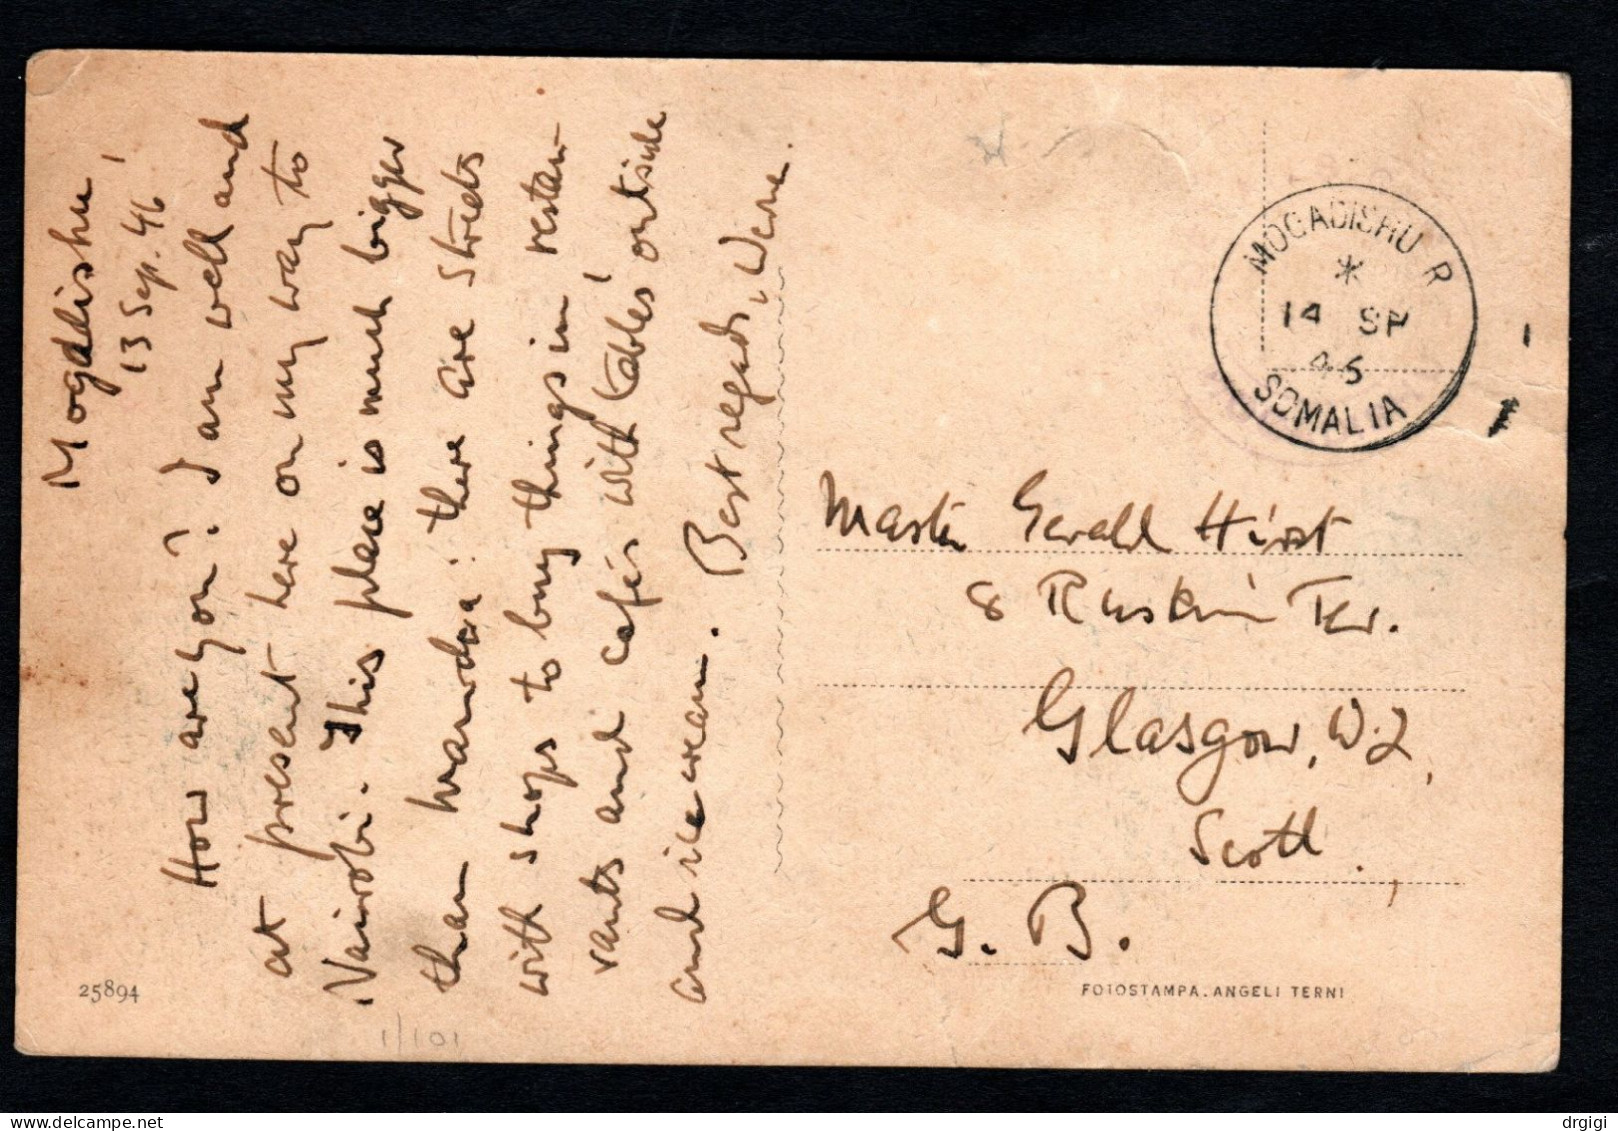 Mogadishu,
13 Sep. 46
How are you? I am well and
at present here on my way to
Nairobi. This place is much bigger
than : there are streets
with shops to buy things in, restau-
rants and cafés with tables outside
and ice cream. Best regards, Werner.
MOGADISHU R
*
14 SP
46
SOMALIA
Master Gerald Hirst
8 Ruskin Ter.
Glasgow, W.2,
Scotl.,
G. B.
25894
FOTOSTAMPA. ANGELI TERNI
1/101
delcampe.net
drgigi